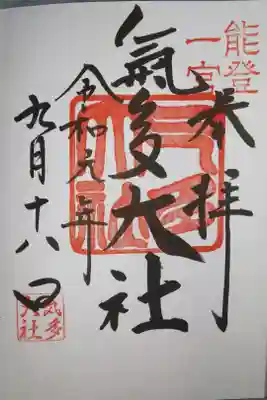 能登
一宮
奉拝
氣多大社
令和元年
九月十八日
気多
大社